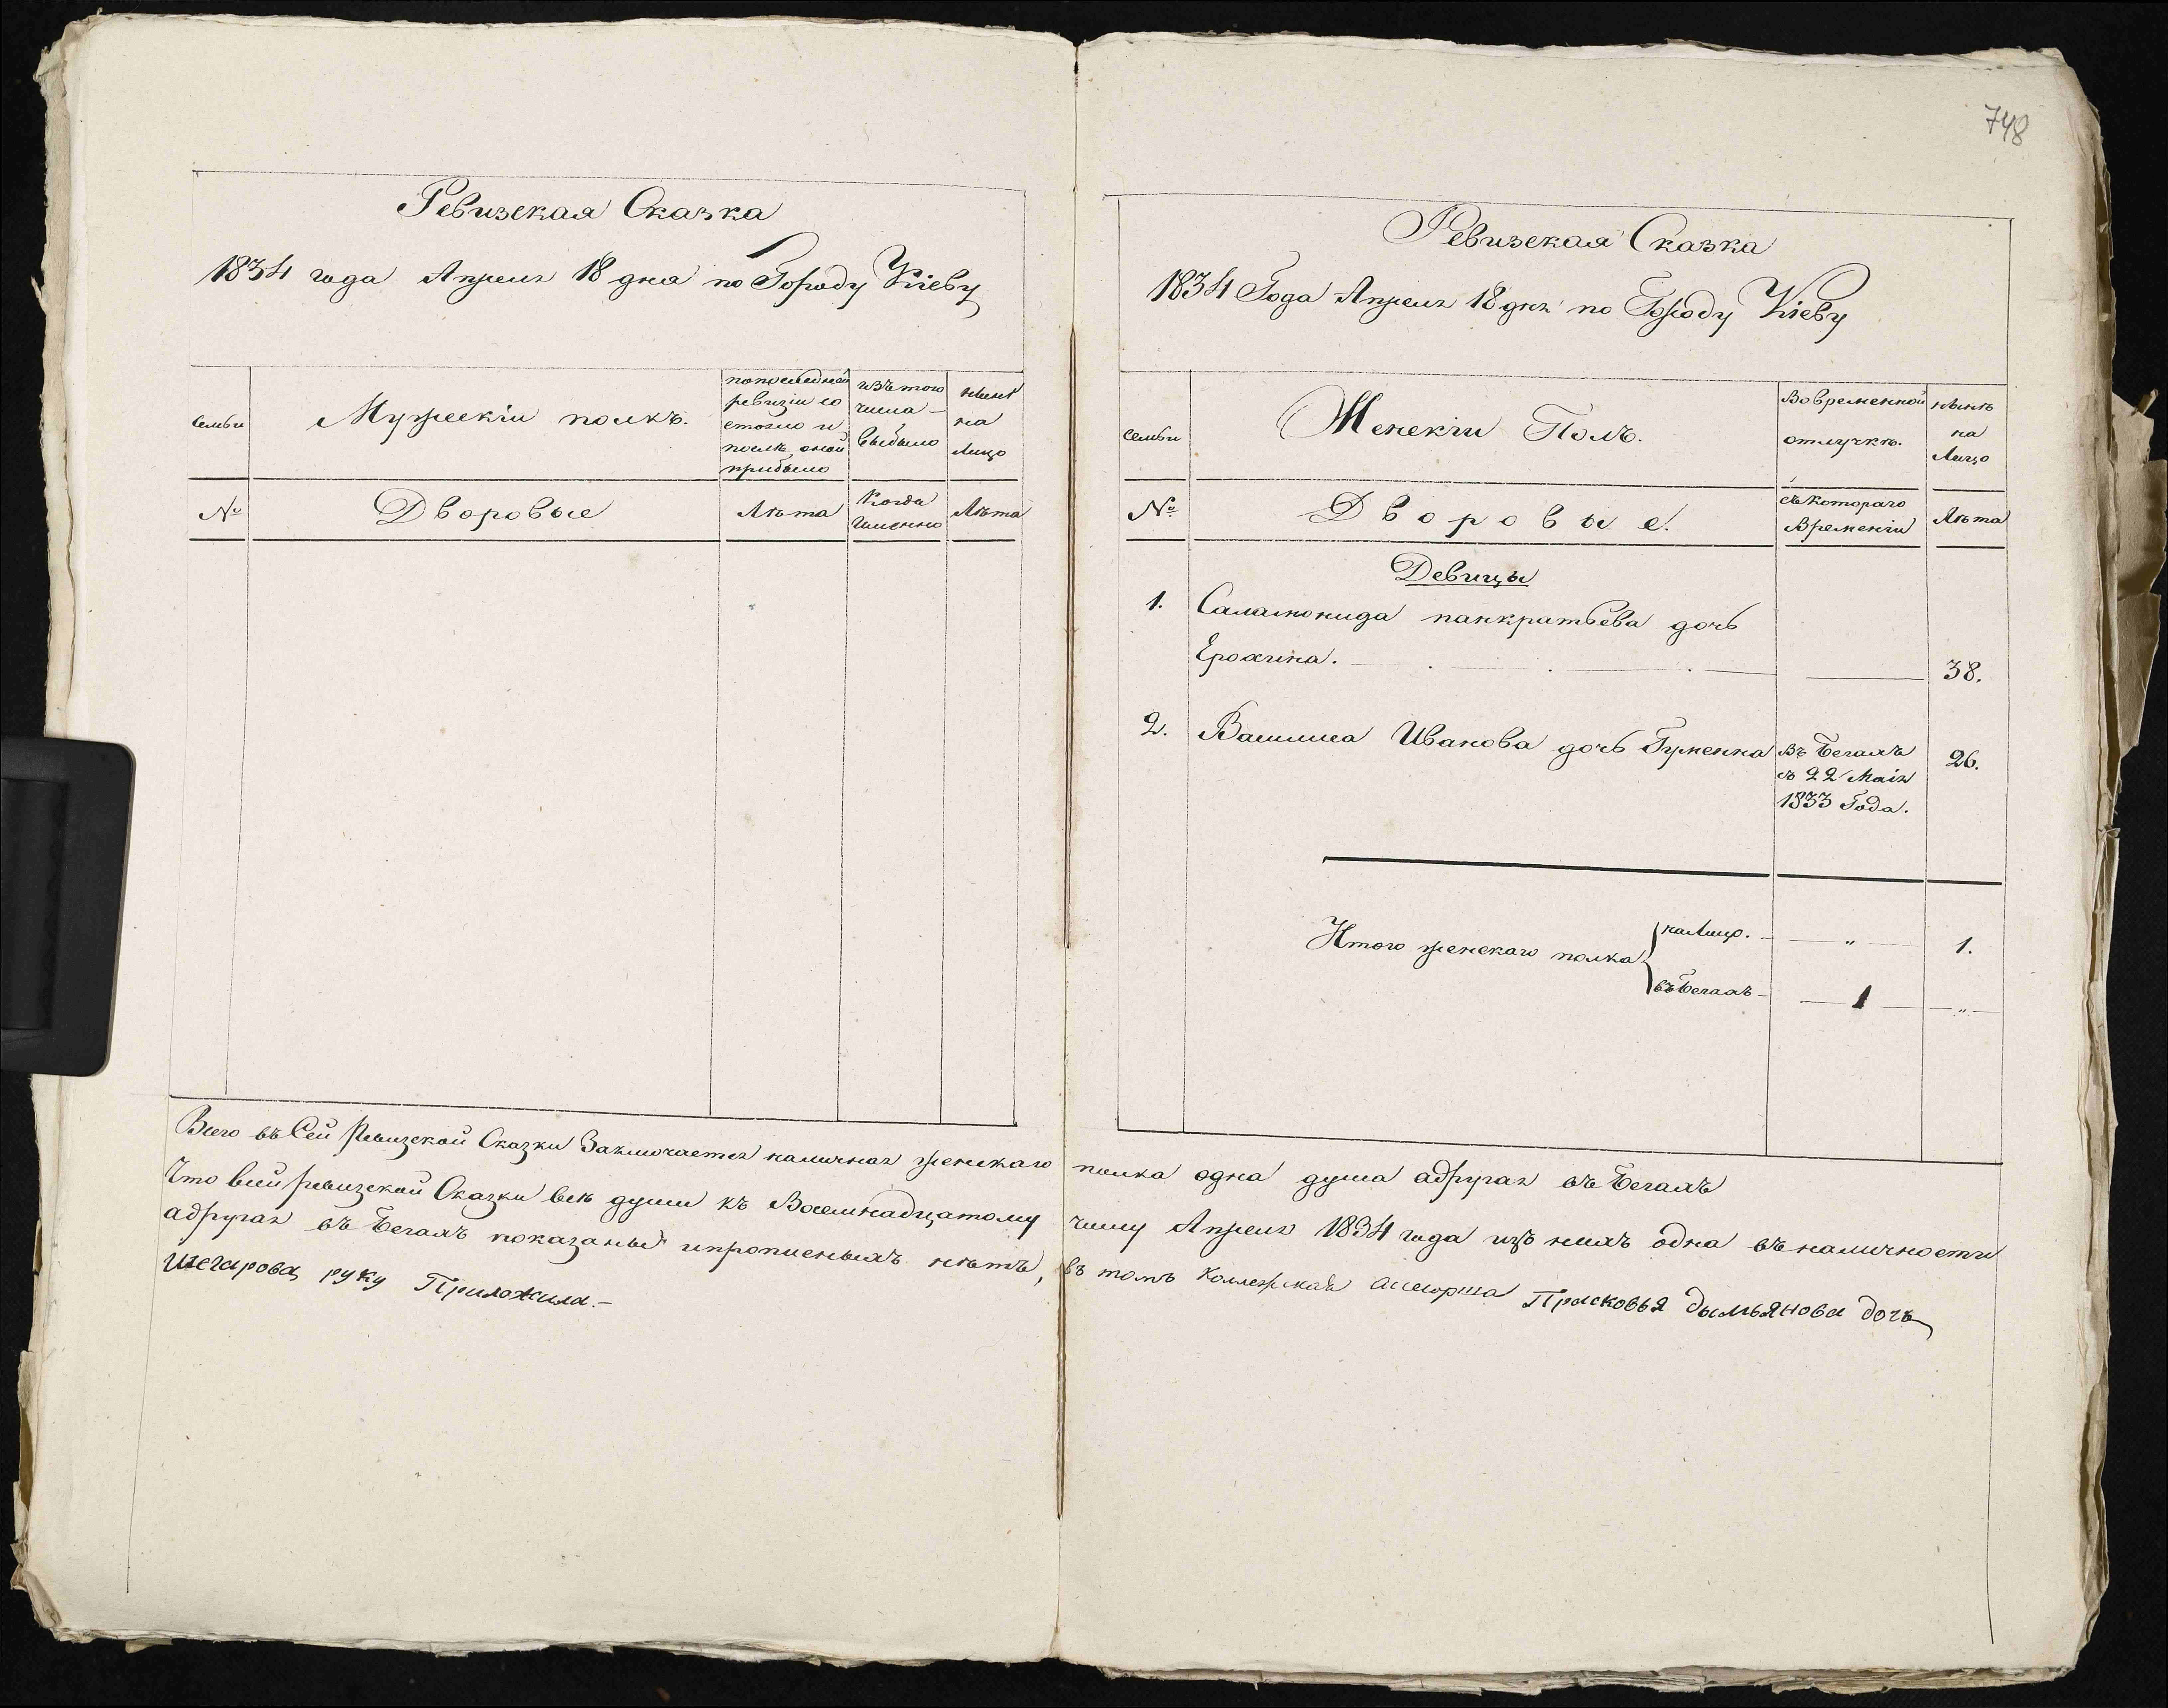 748
Ревизская Сказка
1834 года Апреля 18 дня по Городу Кіеву
семьи
Мужескіи полкъ.
попоследней ревизіи со стояло и послѣ оной прибыло
изъ того числа выбыло
нынѣ на лицо
№
Дворовые
Лѣта
Когда именно
Лѣта
Ревизская Сказка
1834 Года Апреля 18 дня по Городу Кіеву
семьи
Женскіи Полъ.
Вовременной отлучкѣ.
нынѣ на Лицо
№
Дворовые.
съ котораго Времени
Лѣта
Девицы
1. Саламонида панкратьева дочь
Ерохина. 38.
2. Василиса Иванова дочь Гуменна въ Бегахъ 26.
съ 22 Маія
1833 Года.
Итого женскаго полка
на Лицо. - " 1.
въ Бегахъ - 1 - "
Всего въ Сей Ревизской Сказки Заключается наличная женскаго полка одна душа адругая въ Бегахъ
Что всей ревизской Сказки всѣ души къ Восемнадцатому числу Апреля 1834 года изъ нихъ одна въ наличности
адругая въ Бегахъ показаны ипрописныхъ нѣтъ, въ томъ Коллежская асесорша Прасковья дымьянова дочь
шегарова руку Приложила.-